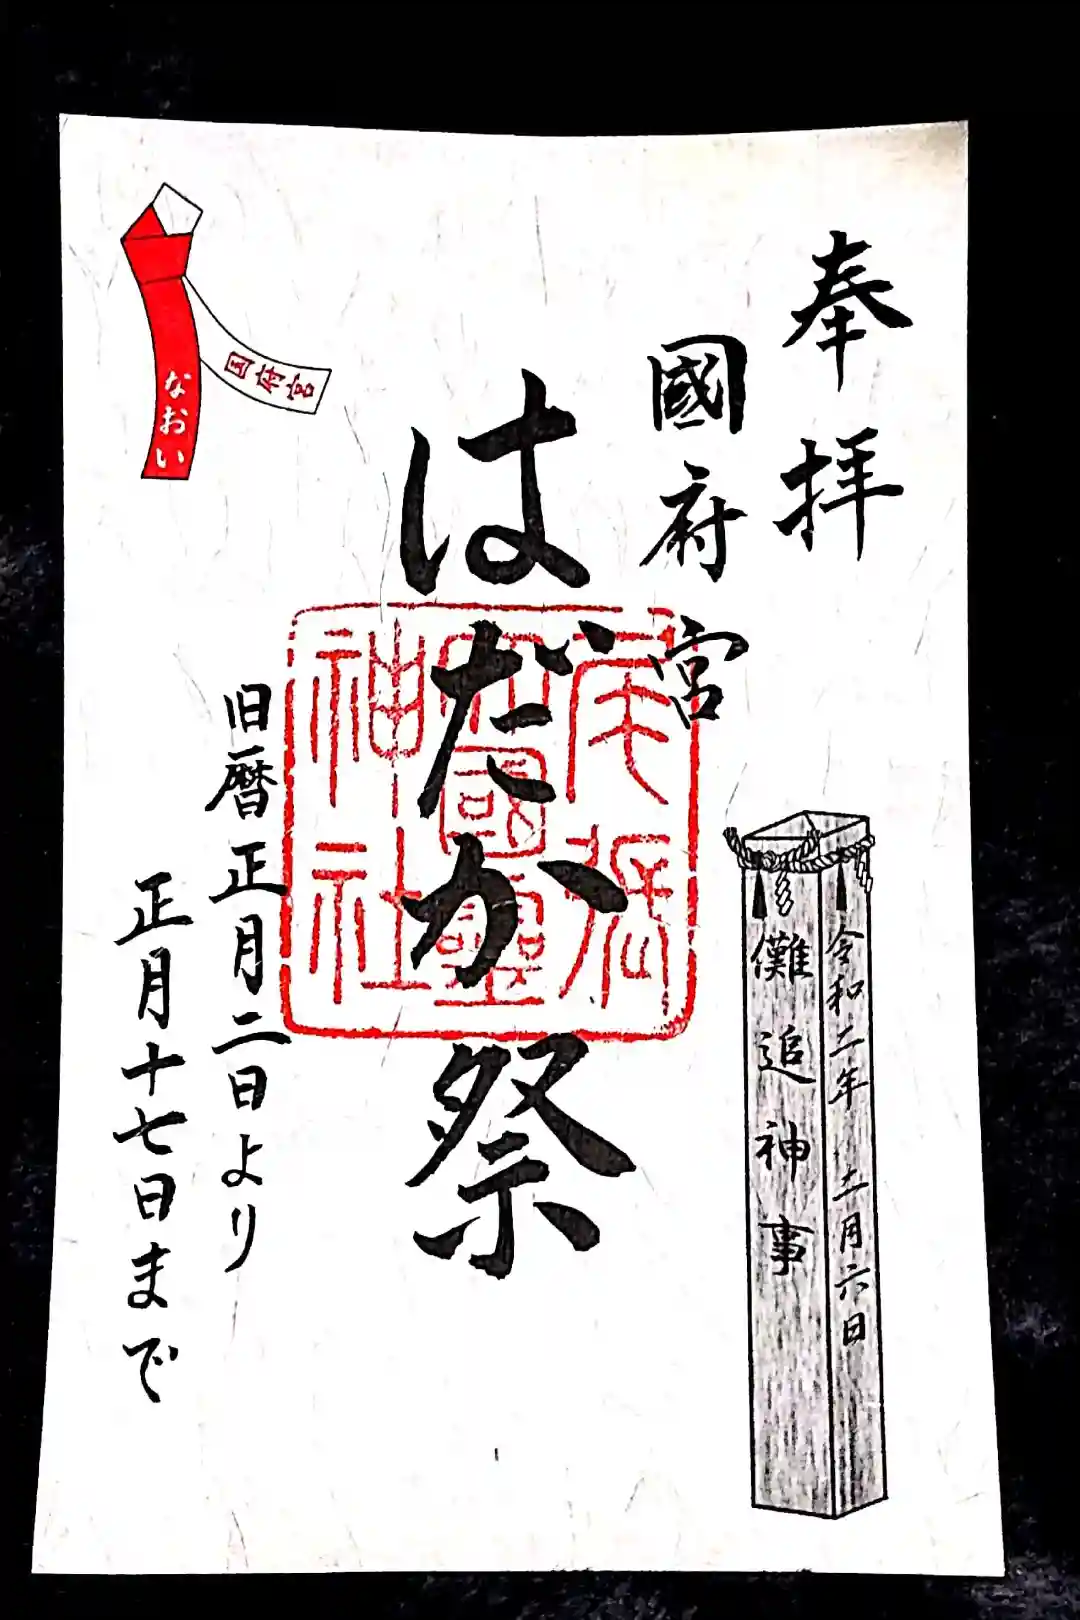 奉拝
國府宮
はだか祭
旧暦正月二日より
正月十七日まで
なおい
国府宮
儺追神事
令和二年 二月六日
尾張
大國霊
神社